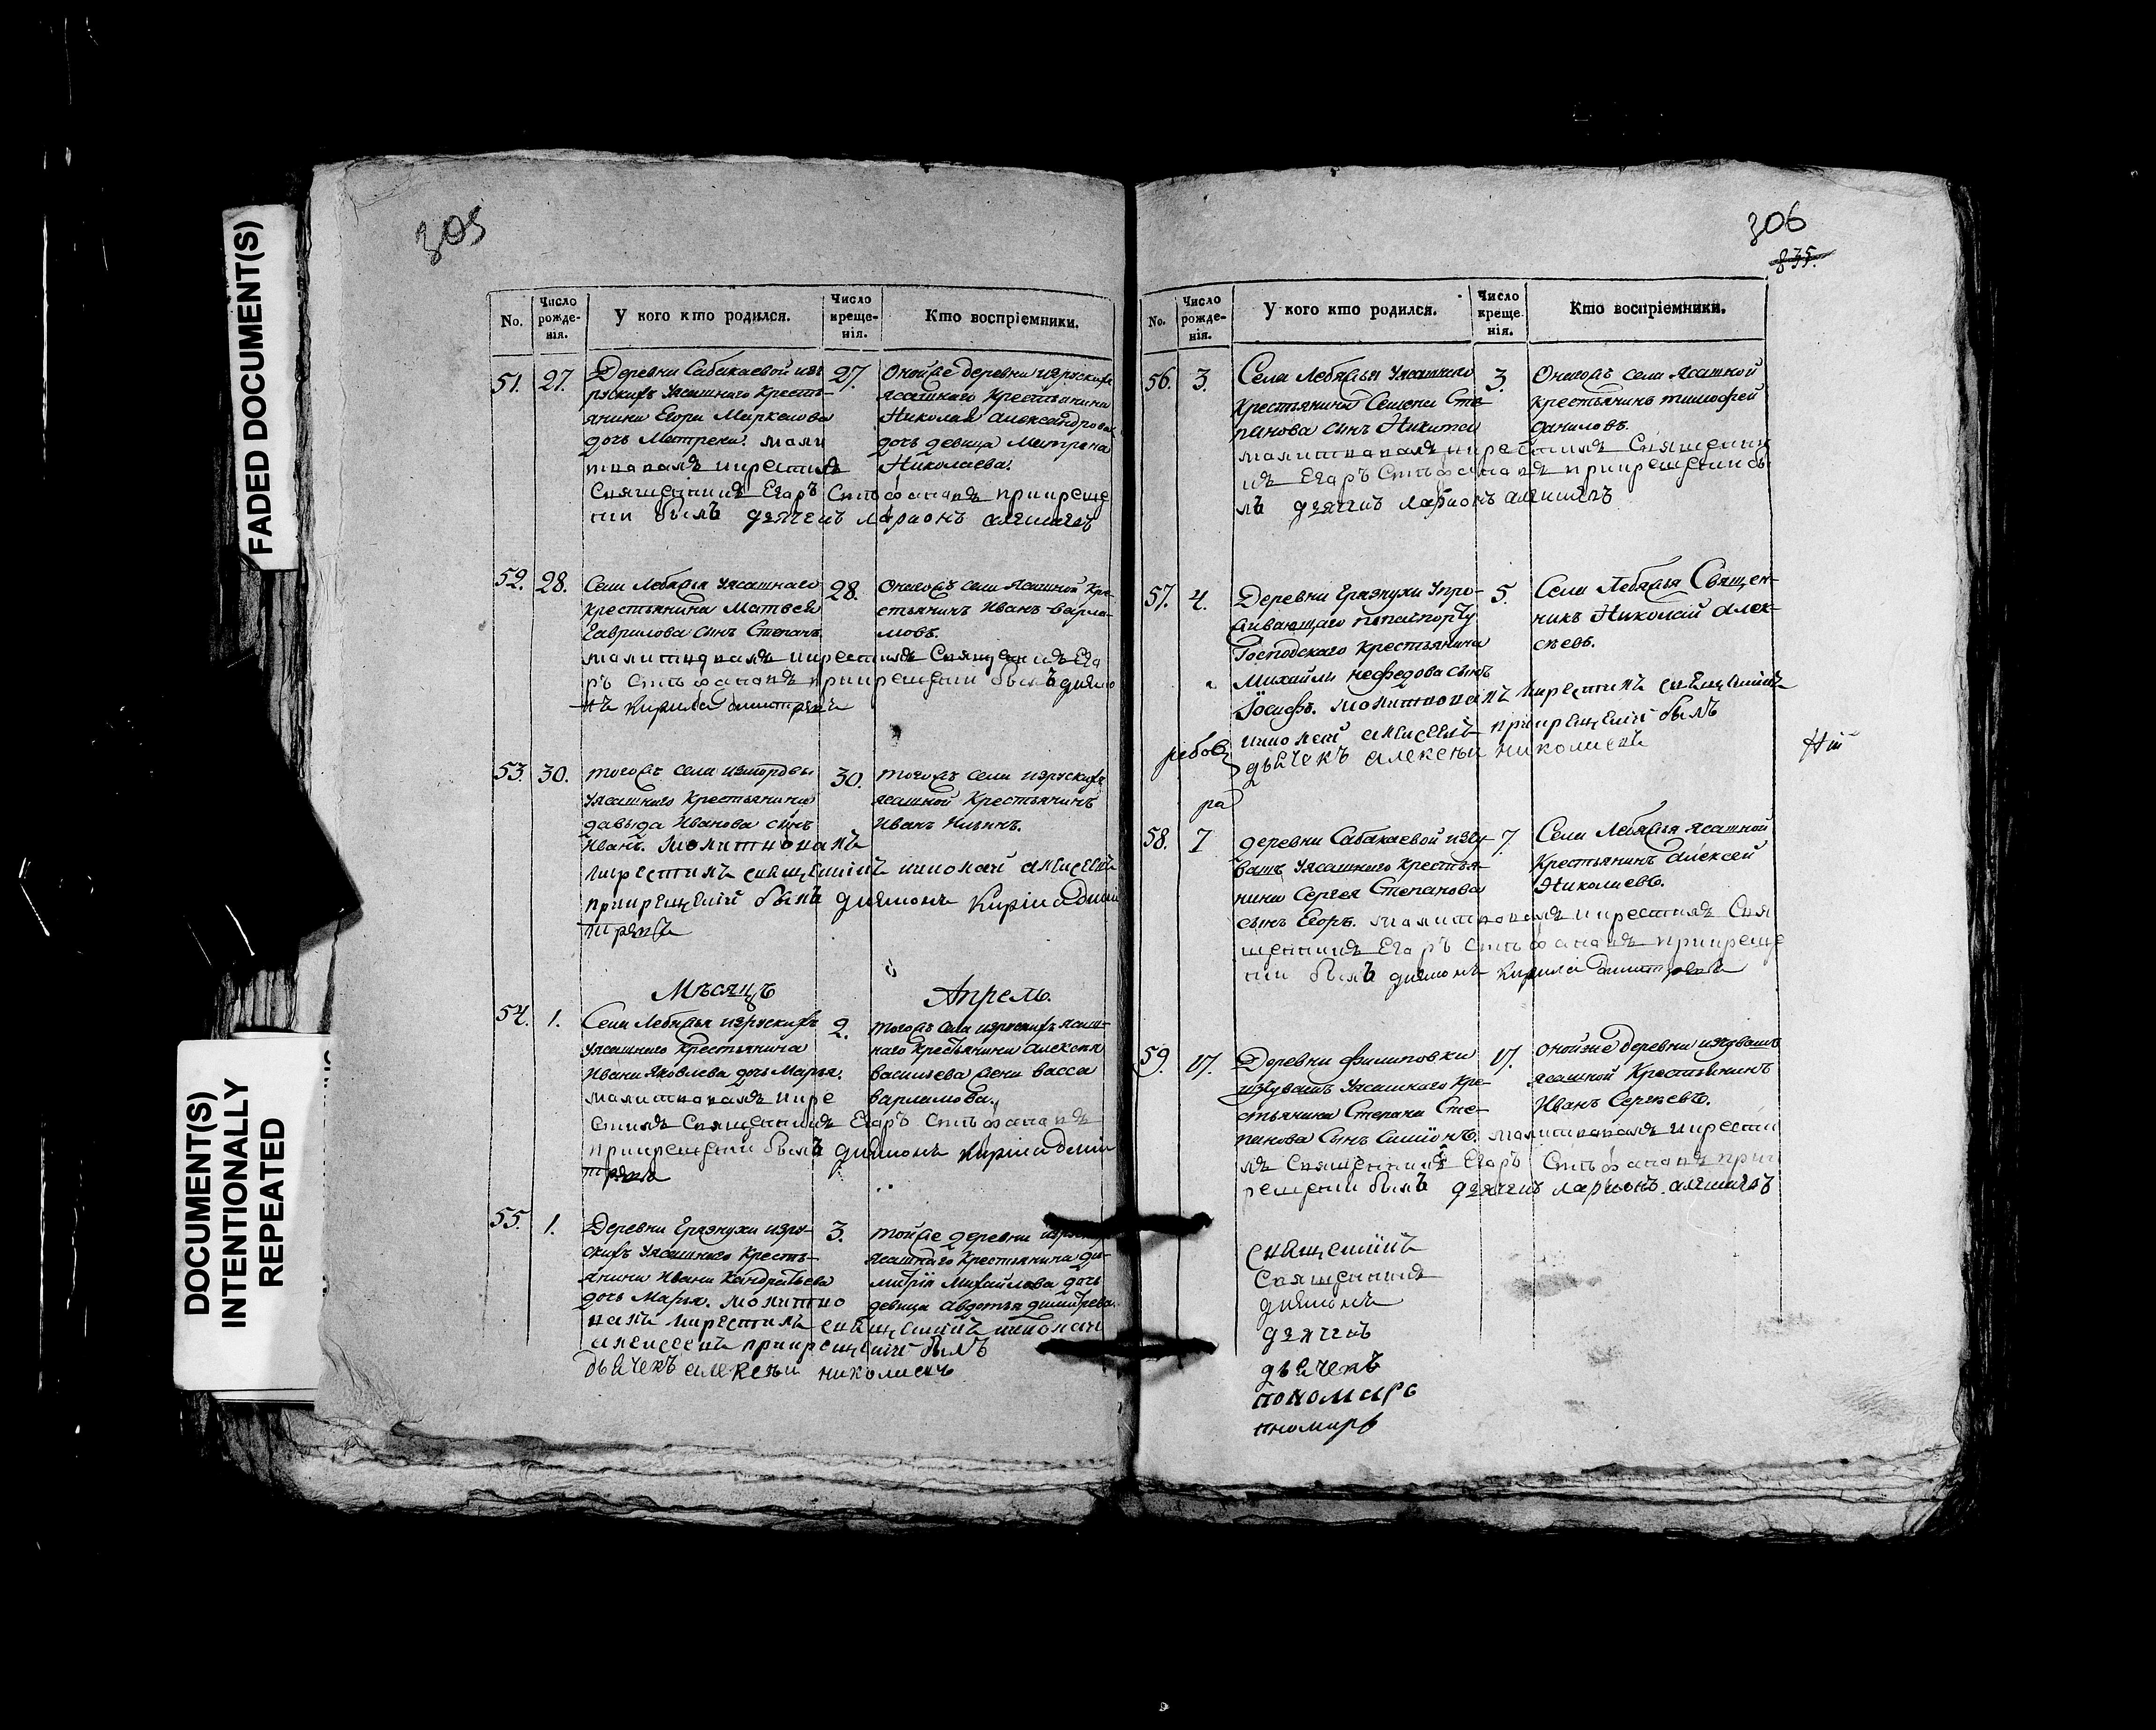 FADED DOCUMENT(S)
DOCUMENT(S)
INTENTIONALLY
REPEATED
305
No.
Число рожде-нія.
У кого кто родился.
Число креще-нія.
Кто воспріемники.
51. 27.
Деревни Сабакаевой изъ
рускихъ уясашнаго Кресть-
янина Егора Маркелова
дочь Матрена. молит
вовалъ икрестилъ
Священникъ Егоръ Стефановъ прикреще
нии былъ дячекъ Ларионъ
27.
Онойже деревни изрускихъ
ясашнаго Крестьянина
Николая Александрова
дочь девица Матрона
Николаева.
52. 28.
Села Лебяжья уясашнаго
крестьянина Матвея
Гаврилова сынъ Степанъ.
молитвовалъ икрестилъ Священникъ Его
ръ Стефановъ прикрещении былъ дияко
нъ Кирила Димитревъ
28.
Оногожъ села Ясашной Кре-
стьянинъ Иванъ Варла-
мовъ.
53. 30.
тогожъ села измордвы
уясашнаго Крестьянина
давыда Иванова сынъ
Иванъ. молитвовалъ
икрестилъ священникъ николай алексеевъ
прикрещений былъ дияконъ Кирила Дими
тревъ
30.
тогожъ села изрускихъ
ясашной Крестьянинъ
Иванъ Ильинъ.
Мѣсяцъ Апрель.
54. 1.
Села Лебяжья изрускихъ
уясашнаго Крестьянина
Ивана Яковлева дочь Марья.
молитвовалъ икре
стилъ Священникъ Егоръ Стефановъ
прикрещении былъ дияконъ Кирила Дими
тревъ
2.
тогожъ села изрускихъ ясаш-
наго Крестьянина Алексея
васильева жена васса
варламова.
55. 1.
Деревни Ерязнухи изру-
скихъ уясашнаго Кресть-
янина Ивана Кандратьева
дочь Марья. молитво
валъ икрестилъ священникъ николай
алексеевъ прикрещений былъ
дьячекъ алексей николаевъ
3.
тойже деревни изрускихъ
ясашнаго Крестьянина ди-
митрія Михайлова дочь
девица авдотья димитрева.
306
835.
No.
Число рожде-нія.
У кого кто родился.
Число креще-нія.
Кто воспріемники.
56. 3.
Села Лебяжья уясашнаго
Крестьянина Семена Сте-
панова сынъ Никита
молитвовалъ икрестилъ Священни
къ Егоръ Стефановъ прикрещении бы
лъ дячекъ Ларионъ
3.
Оногожъ села Ясашной
крестьянинъ тимофей
даниловъ.
57. 4.
Деревни Ерязнухи упро-
живающаго попаспорту
Господскаго крестьянина
Михайли нефедова сынъ
Іосифъ. молитвовалъ икрестилъ священникъ
николай алексеевъ прикрещений былъ
дьячекъ алексей николаевъ
5.
Села Лебяжья Священ-
никъ Николай Алек-
сѣевъ.
58. 7
деревни Сабакаевой изчу-
вашъ уясашнаго Крестья-
нина Сергея Степанова
сынъ Егоръ. молитвовалъ икрестилъ Свя
щенникъ Егоръ Стефановъ прикреще
нии былъ дияконъ Кирила Димитревъ
7.
Села Лебяжья ясашной
Крестьянинъ алексей
Николаевъ.
59. 17.
Деревни филиповки
изчувашъ уясашнаго Кре-
стьянина Степана Сте-
панова Сынъ Симионъ. молитвовалъ икрести
лъ Священникъ Егоръ Стефановъ прик
рещении былъ дячекъ Ларионъ
17.
онойже деревни изчувашъ
ясашной Крестьянинъ
Иванъ Сергеевъ.
священникъ
Священникъ
дияконъ
дячекъ
дьячекъ
пономарь
пномарь